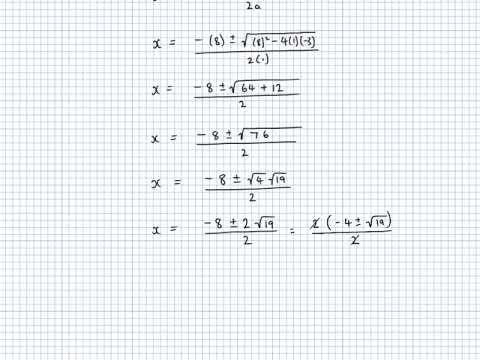 2a
x = -(8) ± √(8)² - 4(1)(-3) / 2(1)
x = -8 ± √64 + 12 / 2
x = -8 ± √76 / 2
x = -8 ± √4 √19 / 2
x = -8 ± 2√19 / 2 = 2(-4 ± √19) / 2